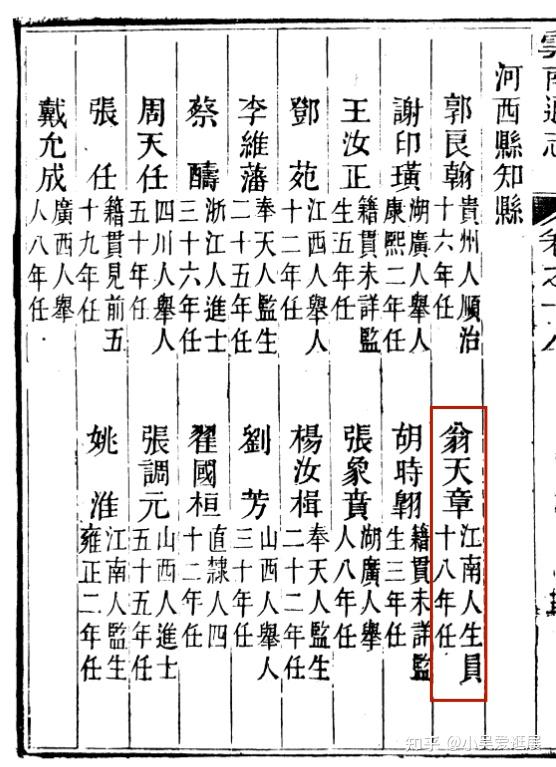 雲南通志
河西縣知縣
郭良翰 貴州人順治十六年任
翁天章 江南人生員十八年任
謝印璜 湖廣人舉人康熙二年任
胡時翺 籍貫未詳監生三年任
王汝正 籍貫未詳監生五年任
張象賁 湖廣人舉人八年任
鄧苑 江西人舉人十二年任
楊汝楫 奉天人監生二十二年任
李維藩 奉天人監生二十五年任
劉芳 山西人舉人三十年任
蔡醻 浙江人進士三十六年任
翟國桓 直隸人四十二年任
周天任 四川人舉人五十年任
張調元 山西人進士五十五年任
張任 籍貫見前五十九年任
姚淮 江南人監生雍正二年任
戴允成 廣西人舉人八年任
知乎 @小吴爱逛展